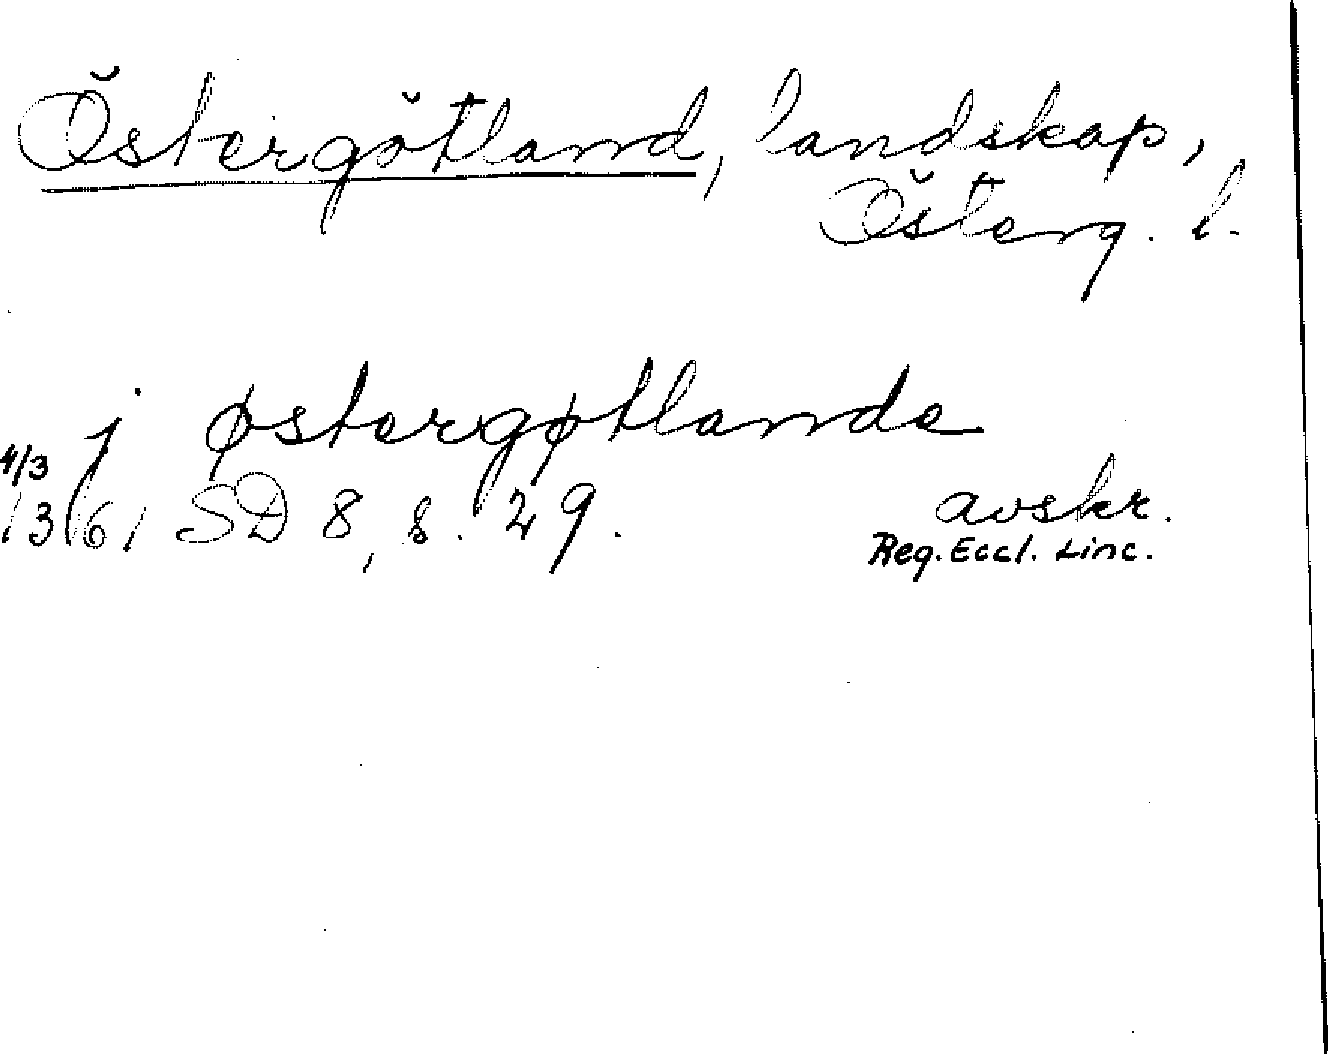 Östergötland, landskap,
Österg. l.
j østergøtlande
4/3
1361 SD 8, s. 29. avskr.
Reg. Eccl. Linc.